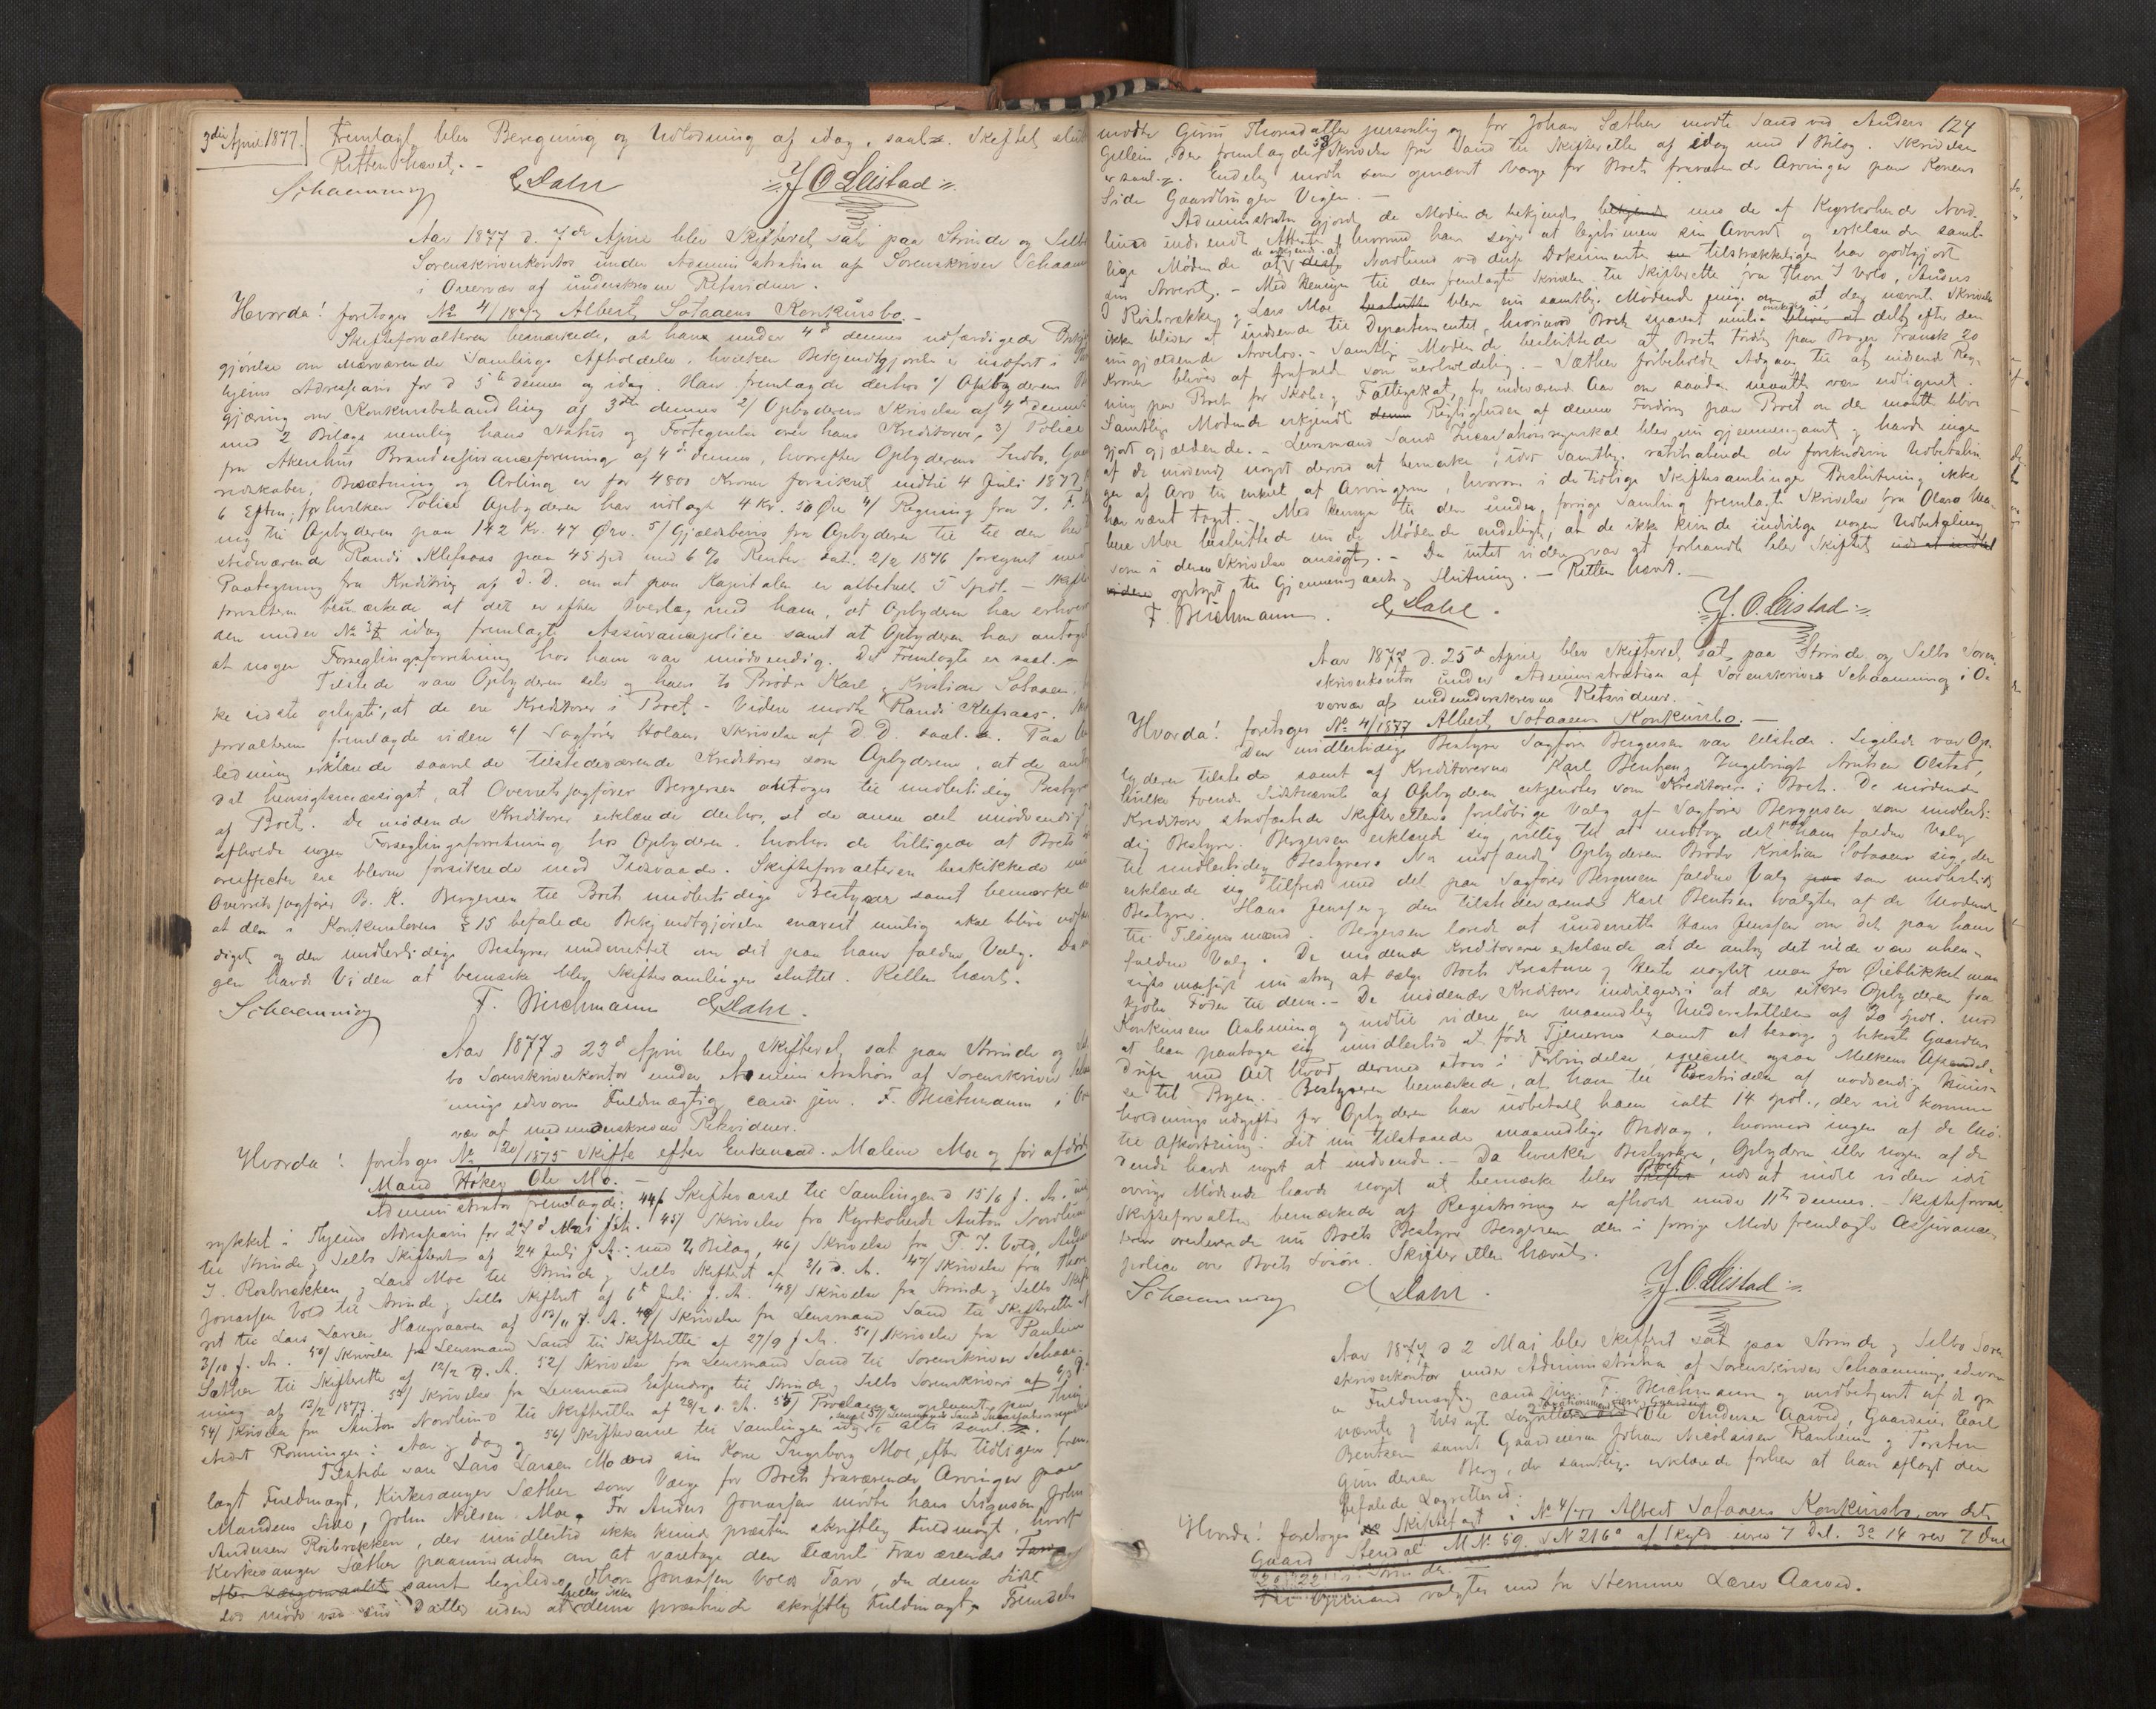 3die April 1877. Fremlagt blev Beregning og Udlodning af idag, saal. Skiftet slut
Retten hævet. -
Schaanning EDahl J O Leistad
Aar 1877 d. 7de April blev Skifteret sat paa Strinde og Selbo
Sorenskriverkontor under Administration af Sorenskriver Schaan
i Overvær af underskrevne Retsvidner.
Hvorda! foretoges No 4/1877 Albert Sotaaens Konkursbo. -
Skifteforvalteren bemærkede, at han under 4de dennes udfærdigede Bekj
gjørelse om nærværende Samlings Afholdelse, hvilken Bekjendtgjørelse er indført i
hjems Adresseavis for d 5te dennes og idag. Han fremlagde derhos 1/ Opbyderens B
gjæring om Konkursbehandling af 3die dennes 2/ Opbyderens Skrivelse af 4de dennes
med 2 Bilage nemlig hans Status og Fortegnelse over hans Kreditorer, 3/ Police
fra Akershus Brandassuranceforening af 4de dennes, hvorefter Opbyderens Indbo, Gaa
redskaber, Besætning og Avling er for 4800 Kroner forsikret indtil 4 Juli 1877
6 Eftm; for hvilken Police Opbyderen har udlagt 4 Kr. 50 Øre 4/ Regning fra I. F.
til Opbyderen paa 142 Kr. 47 Øre. 5/ Gjældsbevis fra Opbyderen til den her
stedværende Randi Klefsaas paa 45 Spd med 6 % Renter dat. 2/2 1876 forsynet med
Paategning fra Kreditrix af D. D. om at paa Kapitalen er afbetalt 5 Spdl. - Skifte
forvalteren bemærkede at det er efter Overlæg med ham, at Opbyderen har erhver
den under No 3 idag fremlagte Assurancepolice samt at Opbyderen har antaget
at nogen Forseglingsforretning hos ham var unødvendig. Det Fremlagte er saal.
Tilstede vare Opbyderen selv og hans to Brødre Karl og Kristian Sotaaen,
ke sidste oplyste, at de ere Kreditorer i Boet. - Videre mødte Randi Klefsaas. Sk
forvalteren fremlagde videre 6/ Sagfører Holans Skrivelse af D. D. saal. Paa
ledning erklærede saavel de tilstedeværende Kreditorer som Opbyderen, at de an
det hensigtsmæssigst, at Overretssagfører Bergersen antoges til midlertidig Bestyr
af Boet. De mødende Kreditorer erklærede derhos, at de anse det unødvendigt
afholde nogen Forseglingsforretning hos Opbyderen, hvorhos de billigede at Boets
øreffecter ere blevne forsikrede mod Ildsvaade. Skifteforvalteren beskikkede
Overretssagfører B. K. Bergersen til Boets midlertidige Bestyrer samt bemærkede
at den i Konkurslovens § 15 befalede Bekjendtgjørelse snarest mulig skal blive udfær
diget og den midlertidige Bestyrer underrettet om det paa ham faldne Valg. Da in
gen havde Viden at bemærke blev Skiftesamlingen sluttet. Retten hævet.
Schaanning F. Michmann EDahl.
Aar 1877 d 23de April blev Skifteret sat paa Strinde og Sel
bo Sorenskriverkontor under Administration af Sorenskriver Schaa
nings edsvorne Fuldmægtig cand. jur. F. Michmann i Over
vær af medunderskrevne Retsvidner.
Hvorda! foretoges No 120/1875 Skifte efter Enkemad. Malene Moe og før afdøde
Mand Høker Ole Mo. -
Administrator fremlagde: 44/ Skiftevarsel til Samlingen d 15/6 f. A. ind
rykket i Thjems Adresseavis for 27de Mai f. A. 45/ Skrivelse fra Kyrkoherde Anton Nordlind
til Strinde og Selbo Skifteret af 24 Juli f. A. med 2 Bilag, 46/ Skrivelse fra T. J. Vold, Anders
J. Rosbrækken og Lars Moe til Strinde og Selbo Skifteret af 3/1 d. A. 47/ Skrivelse fra Thore
Jonassen Vold til Strinde og Selbo Skifteret af 6te Juli f. A. 48/ Skrivelse fra Strinde og Selbo Skift
ret til Lars Larsen Haugraaen af 13/11 f. A. 49/ Skrivelse fra Lensmand Sand til Skifteretten af
3/10 f. A. 50/ Skrivelse fra Lensmand Sand til Skifteretten af 27/9 f. A. 51/ Skrivelse fra Pauline
Sæther til Skifteretten af 12/2 d. A. 52/ Skrivelse fra Lensmand Sand til Sorenskriver Schaan-
ning af 13/2 1877. 53/ Skrivelse fra Lensmand Essendrop til Strinde og Selbo Sorenskriveri af 6/3 d.
54/ Skrivelse fra Anton Nordlind til Skifteretten af 28/2 d. A. 55/ Proclama oplæst paa Thing
stedet Ronningen i Aar og Dag og 56/ Skiftevarsel til Samlingen idag samt 57/ Lensmand Sands Incassationsregnskab alts saal.
Tilstede vare Lars Larsen Mo med sin Kone Ingeborg Moe, efter tidligere frem-
lagt Fuldmagt, Kirkesanger Sæther som Værge for Boets fraværende Arvinger paa
Mandens Side, John Nilsen Moe. For Anders Jonassen mødte hans Svigersøn John
Andersen Rosbrækken, der imidlertid ikke kunde præstere skriftlig Fuldmagt, hvorfor
Kirkesanger Sæther paamindedes om at varetage den nævnte Fraværendes Tarv
samt ligeledes Thore Jonassen Volds Tarv, da denne Sidst
lod møde ved sin Datter uden at heller ikke denne præsterede skriftlig Fuldmagt. Fremdeles
124
mødte Guru Thorsdatter personlig og for Johan Sæther mødte Sand ved Anders
Gullein, der fremlagde 58/ Skrivelse fra Sand til Skifteretten af idag med 1 Bilag. Skrivelsen
er saal. Endelig mødte som opnævnt Værge for Boets fraværende Arvinger paa Konens
Side Gaardbruger Vigen. -
Administrator gjorde de Mødende bekjendte med de af Kyrkoherde Nord-
lind indsendte Attester hvormed han søger at legitimere sin Arveret og erklærede samt-
lige Mødende at de ansaae at Nordlund ved disse Dokumenter tilstrækkeligen har godtgjort
sin Arveret. - Med Hensyn til den fremlagte Skrivelse til Skifteretten fra Thore J Vold, Anders
J Rosbrække og Lars Moe bleve nu samtlige Mødende enige om at den nævnte Skrivelse
ikke bliver at indsende til Departementet, hvorimod Boet snarest mulig ønskes delt efter den
nu gjældende Arvelov. - Samtlige Mødende besluttede at Boets Fordring paa Roger Fransk 20
Kroner bliver at frafalde som uerholdelig. - Sæther forbeholdt Adgang til at indsende Reg-
ning paa Boet for Skole og Fattigskat, for indeværende Aar om saadan maatte være udlignet.
Samtlige Mødende erkjendte Rigtigheden af denne Fordring paa Boet om den maatte blive
gjort gjældende. - Lensmand Sands Incassationsregnskab blev nu gjennemgaaet og havde ingen
af de mødende noget derved at bemærke, idet samtlige ratihaberede de forskudsvise Udbetalin
ger af Arv til enkelte af Arvingerne, hvorom i de tidligere Skiftesamlinger Beslutning ikke
har været taget. - Med Hensyn til den under forrige Samling fremlagte Skrivelse fra Olava Ma-
lene Moe besluttede nu de Mødende endeligt, at de ikke kunde indvilge nogen Udbetaling
som i denne Skrivelse ansøgt. - Da intet videre var at forhandle blev Skiftet
optaget til Gjennemgaaelse og Slutning. - Retten hævet. -
F. Michmann. EDahl. J. O. Leistad
Aar 1877 d. 25de April blev Skifteret sat paa Strinde og Selbo Soren-
skriverkontor under Administration af Sorenskriver Schaanning i O-
vervær af medunderskrevne Retsvidner.
Hvorda! foretoges No 4/1877 Albert Sotaaens Konkursbo. -
Den midlertidige Bestyrer Sagfører Bergersen var tilstede. Ligeledes var Op-
byderen tilstede samt af Kreditorerne Karl Bentzen og Ingebrigt Arntsen Olstad,
hvilke tvende Sidstnævnte af Opbyderen erkjendtes som Kreditorer i Boet. De mødende
Kreditorer stadfæstede Skifterettens foreløbige Valg af Sagfører Bergersen som midlerti-
dig Bestyrer. Bergersen erklærede sig villig til at modtage det paa ham faldne Valg
til midlertidig Bestyrer. Nu indfandt Opbyderens Broder Kristian Sotaaen sig, der
erklærede sig tilfreds med det paa Sagfører Bergersen faldne Valg som midlertidig
Bestyrer. Hans Jenssen og den tilstedeværende Karl Bentsen valgtes af de Mødende
til Tilsynsmænd. Bergersen lovede at underrette Hans Jenssen om det paa ham
faldne Valg. De mødende Kreditorer erklærede at de antog det vilde være uhen-
sigtsmæssigt nu strax at sælge Boets Kreature og Heste uagtet man for Øieblikket maa
kjøbe Foder til dem. - De mødende Kreditorer indvilgede i at der sikres Opbyderen fra
Konkursens Aabning og indtil videre en maanedlig Understøttelse af 20 Spdl. mod
at han paatager sig imidlertid at føde Tjenerne samt at besørge og bekoste Gaardens
Drift med Alt hvad dermed staar i Forbindelse, specielt ogsaa Melkens Afsendel-
se til Byen. - Bestyreren bemærkede, at han til Bestridelse af nødvendige Huus-
holdningsudgifter for Opbyderen har udbetalt ham ialt 14 Spdl., der vil komme
til Afkortning i det nu tilstaaede maanedlige Bidrag, hvorimod ingen af de Mø-
dende havde noget at indvende. - Da hverken Bestyreren, Opbyderen eller nogen af de
øvrige Mødende havde noget at bemærke blev Boet udsat indtil videre idet
Skifteforvalteren bemærkede at Registrering er afholdt under 11te dennes. - Skifteforval-
teren overleverede nu Boets Bestyrer Bergersen den i forrige Møde fremlagte Assurance-
police over Boets Løsøre. Skifteretten hævet.
Schaanning EDahl. J. O. Leistad
Aar 1877 d 2 Mai blev Skifteret sat paa Strinde og Selbo Soren
skriverkontor under Administration af Sorenskriver Schaannings edsvor
ne Fuldmægtig cand jur. F. Michmann og medbetjent af de op
nævnte og tilsagte Ole Andersen Aasved, Gaardeier Carl
Bentsen samt Gaardeierne Johan Nicolaisen Ranheim og Torsten
Gundersen Berg, der samtlige erklærede forhen at have aflagt den
befalede Lagretteed.
Hvorda! foretoges Skiftetaxt i No 4/77 Albert Sotaaens Konkursbo, over det
Gaard Stendal M No 59. L N 216a af Skyld urev 7 Dal. 3 ort 14 rev 7 Dal
2 ort 22 i Strinden.
Til Opmand valgtes med fra Stemmer Lærer Aasved.